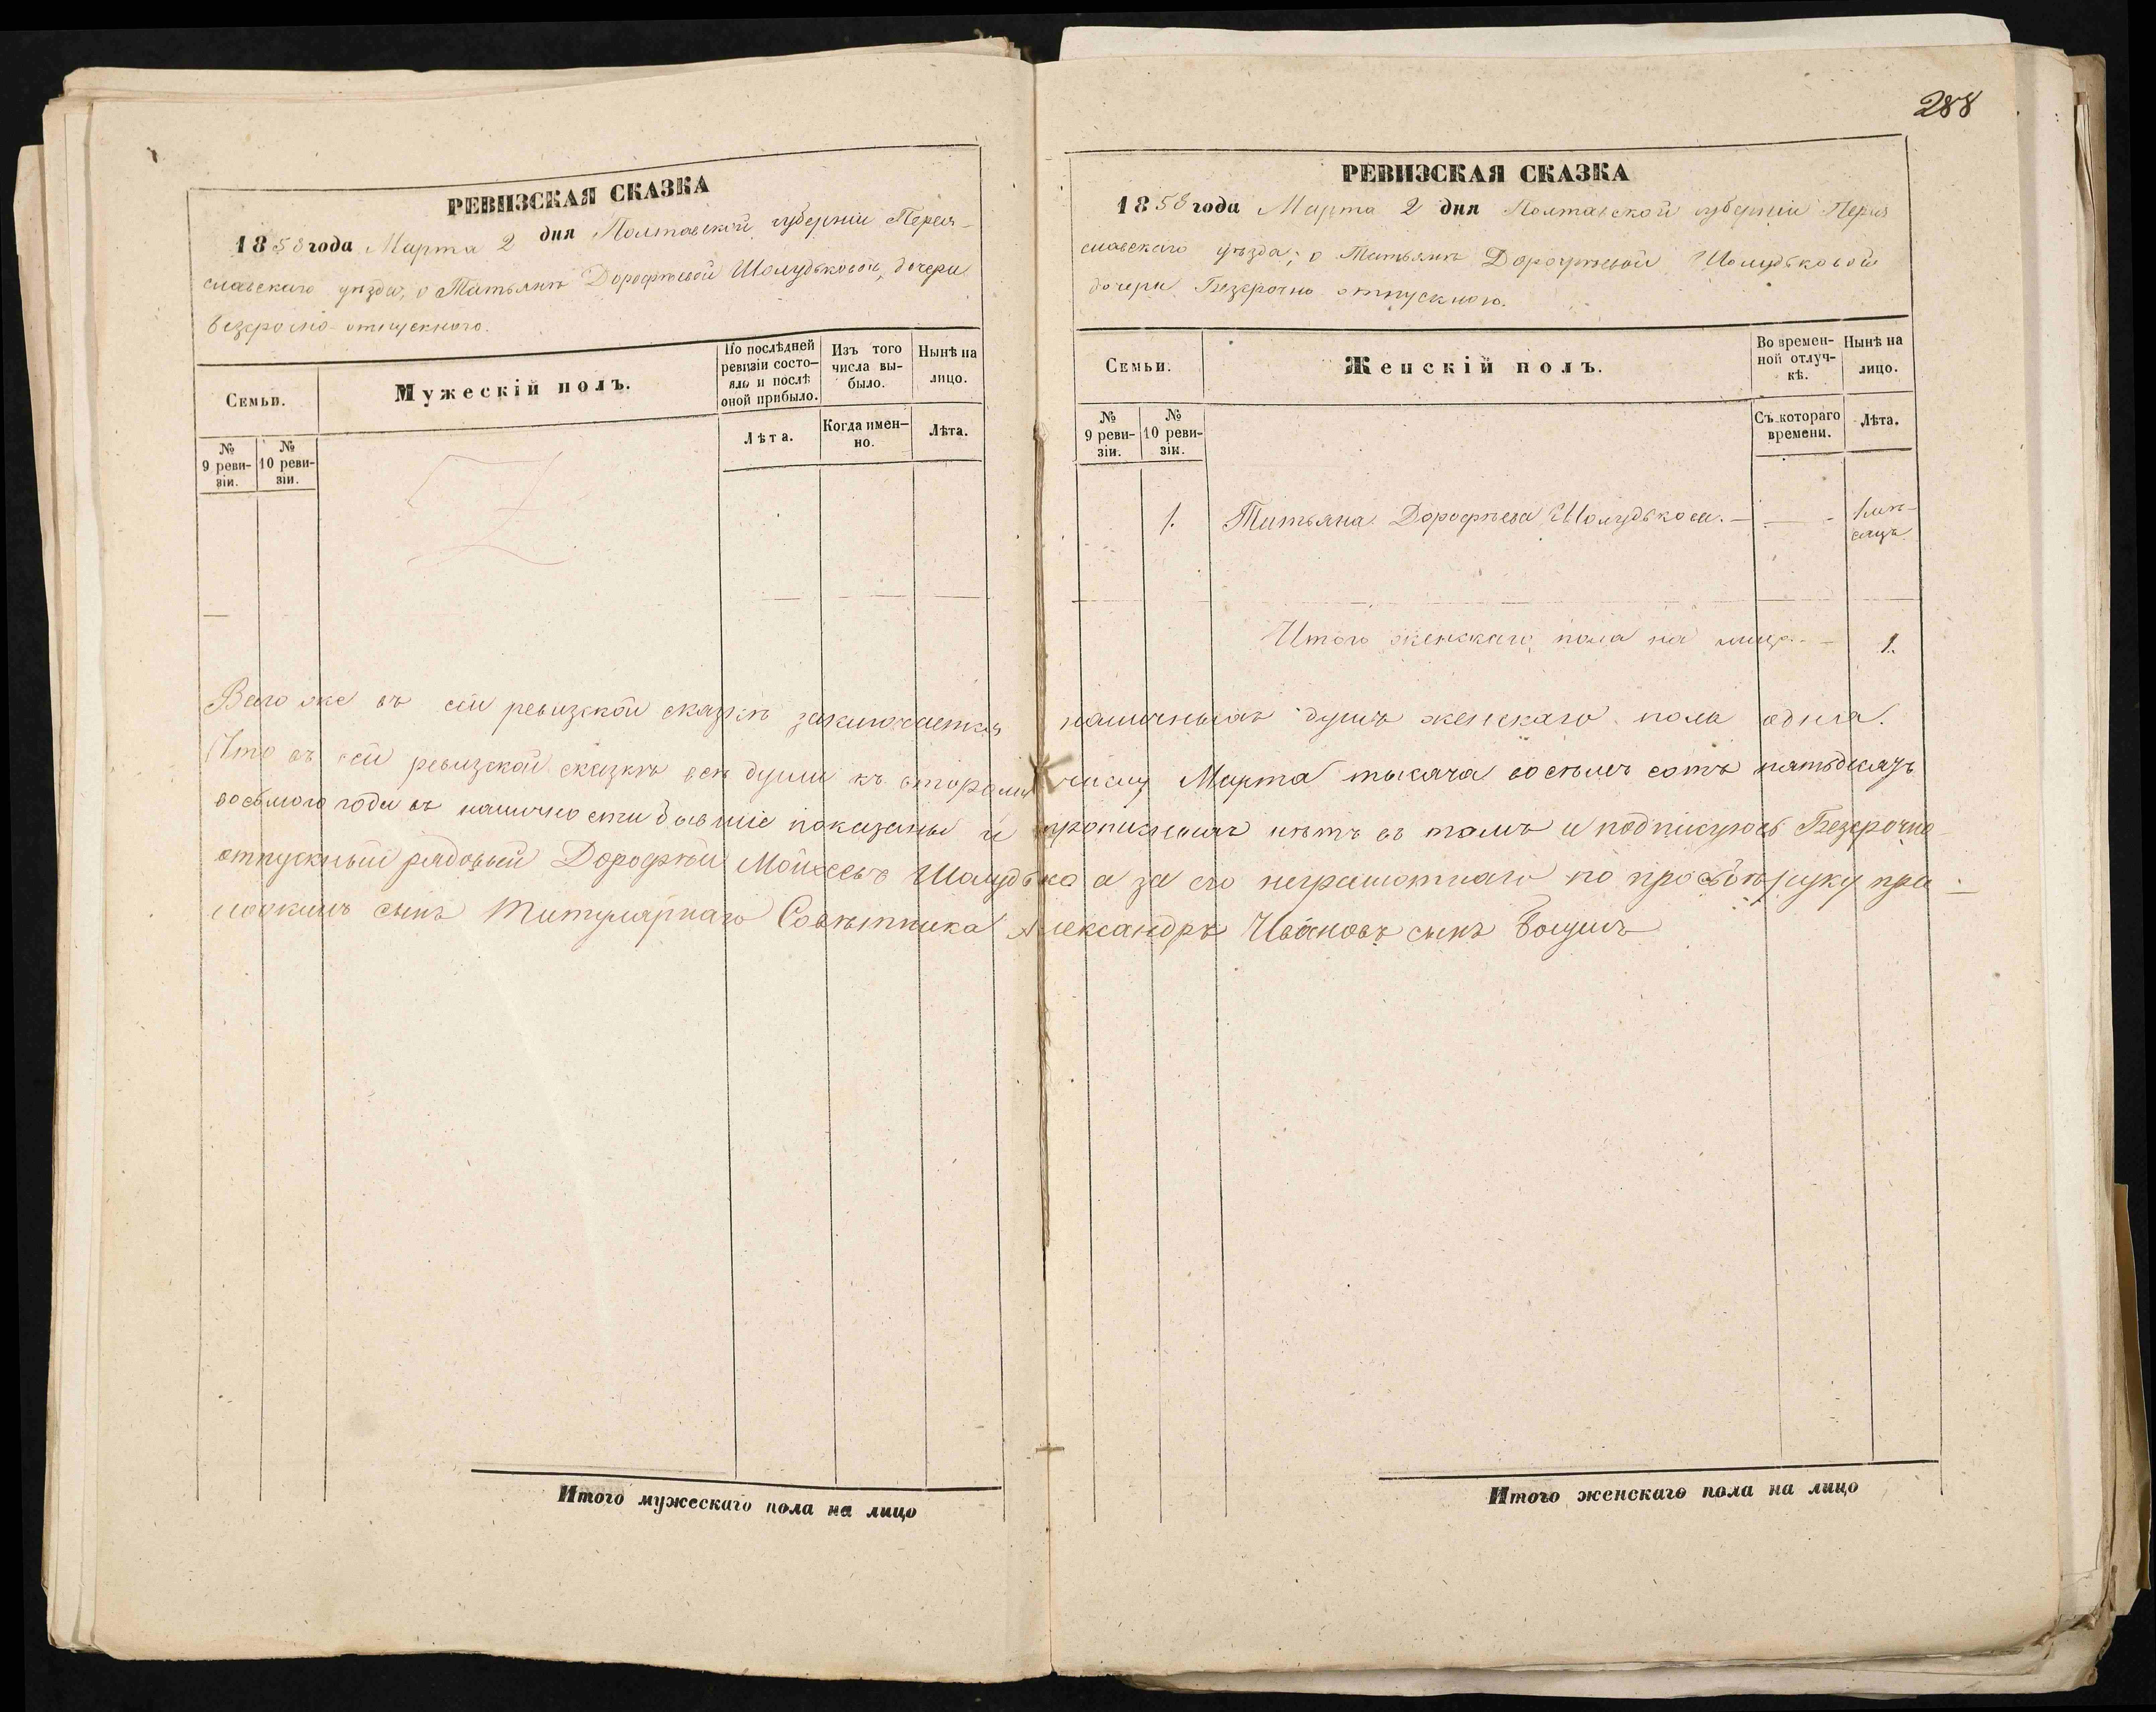 288
РЕВИЗСКАЯ СКАЗКА
1858 года Марта 2 дня Полтавской губерніи Перея-
славскаго уѣзда, о Татьянѣ Дорофѣевой Шолудьковой, дочери
безсрочно-отпускного.
Семьи.
Мужескій полъ.
По послѣдней
ревизіи состо-
яло и послѣ
оной прибыло.
Изъ того
числа вы-
было.
Нынѣ на
лицо.
№
9 реви-
зіи.
№
10 реви-
зіи.
Лѣта.
Когда имен-
но.
Лѣта.
РЕВИЗСКАЯ СКАЗКА
1858 года Марта 2 дня Полтавской губерніи Перея
славскаго уѣзда; о Татьянѣ Дорофѣевой Шолудьковой
дочери Безсрочно отпускного.
Семьи.
Женскій полъ.
Во времен-
ной отлуч-
кѣ.
Нынѣ на
лицо.
№
9 реви-
зіи.
№
10 реви-
зіи.
Съ котораго
времени.
Лѣта.
1. Татьяна Дорофѣева Шолудькова. — 1 мѣ-
сяцъ
Итого женскаго пола на лицо — 1.
Всего же въ сей ревизской сказкѣ заключается наличныхъ душъ женскаго пола одна.
Что въ сей ревизской сказкѣ всѣ души къ второму числу Марта тысяча восемь сотъ пятьдесятъ
восьмого года въ наличности бывшіе показаны и прописныхъ нѣтъ въ томъ и подписуюсь Безсрочно
отпускный рядовый Дорофѣй Мойсеевъ Шолудько а за его неграмотнаго по просьбѣ руку при-
ложилъ сынъ Титулярнаго Совѣтника Александръ Ивановъ сынъ
Итого мужескаго пола на лицо
Итого женскаго пола на лицо